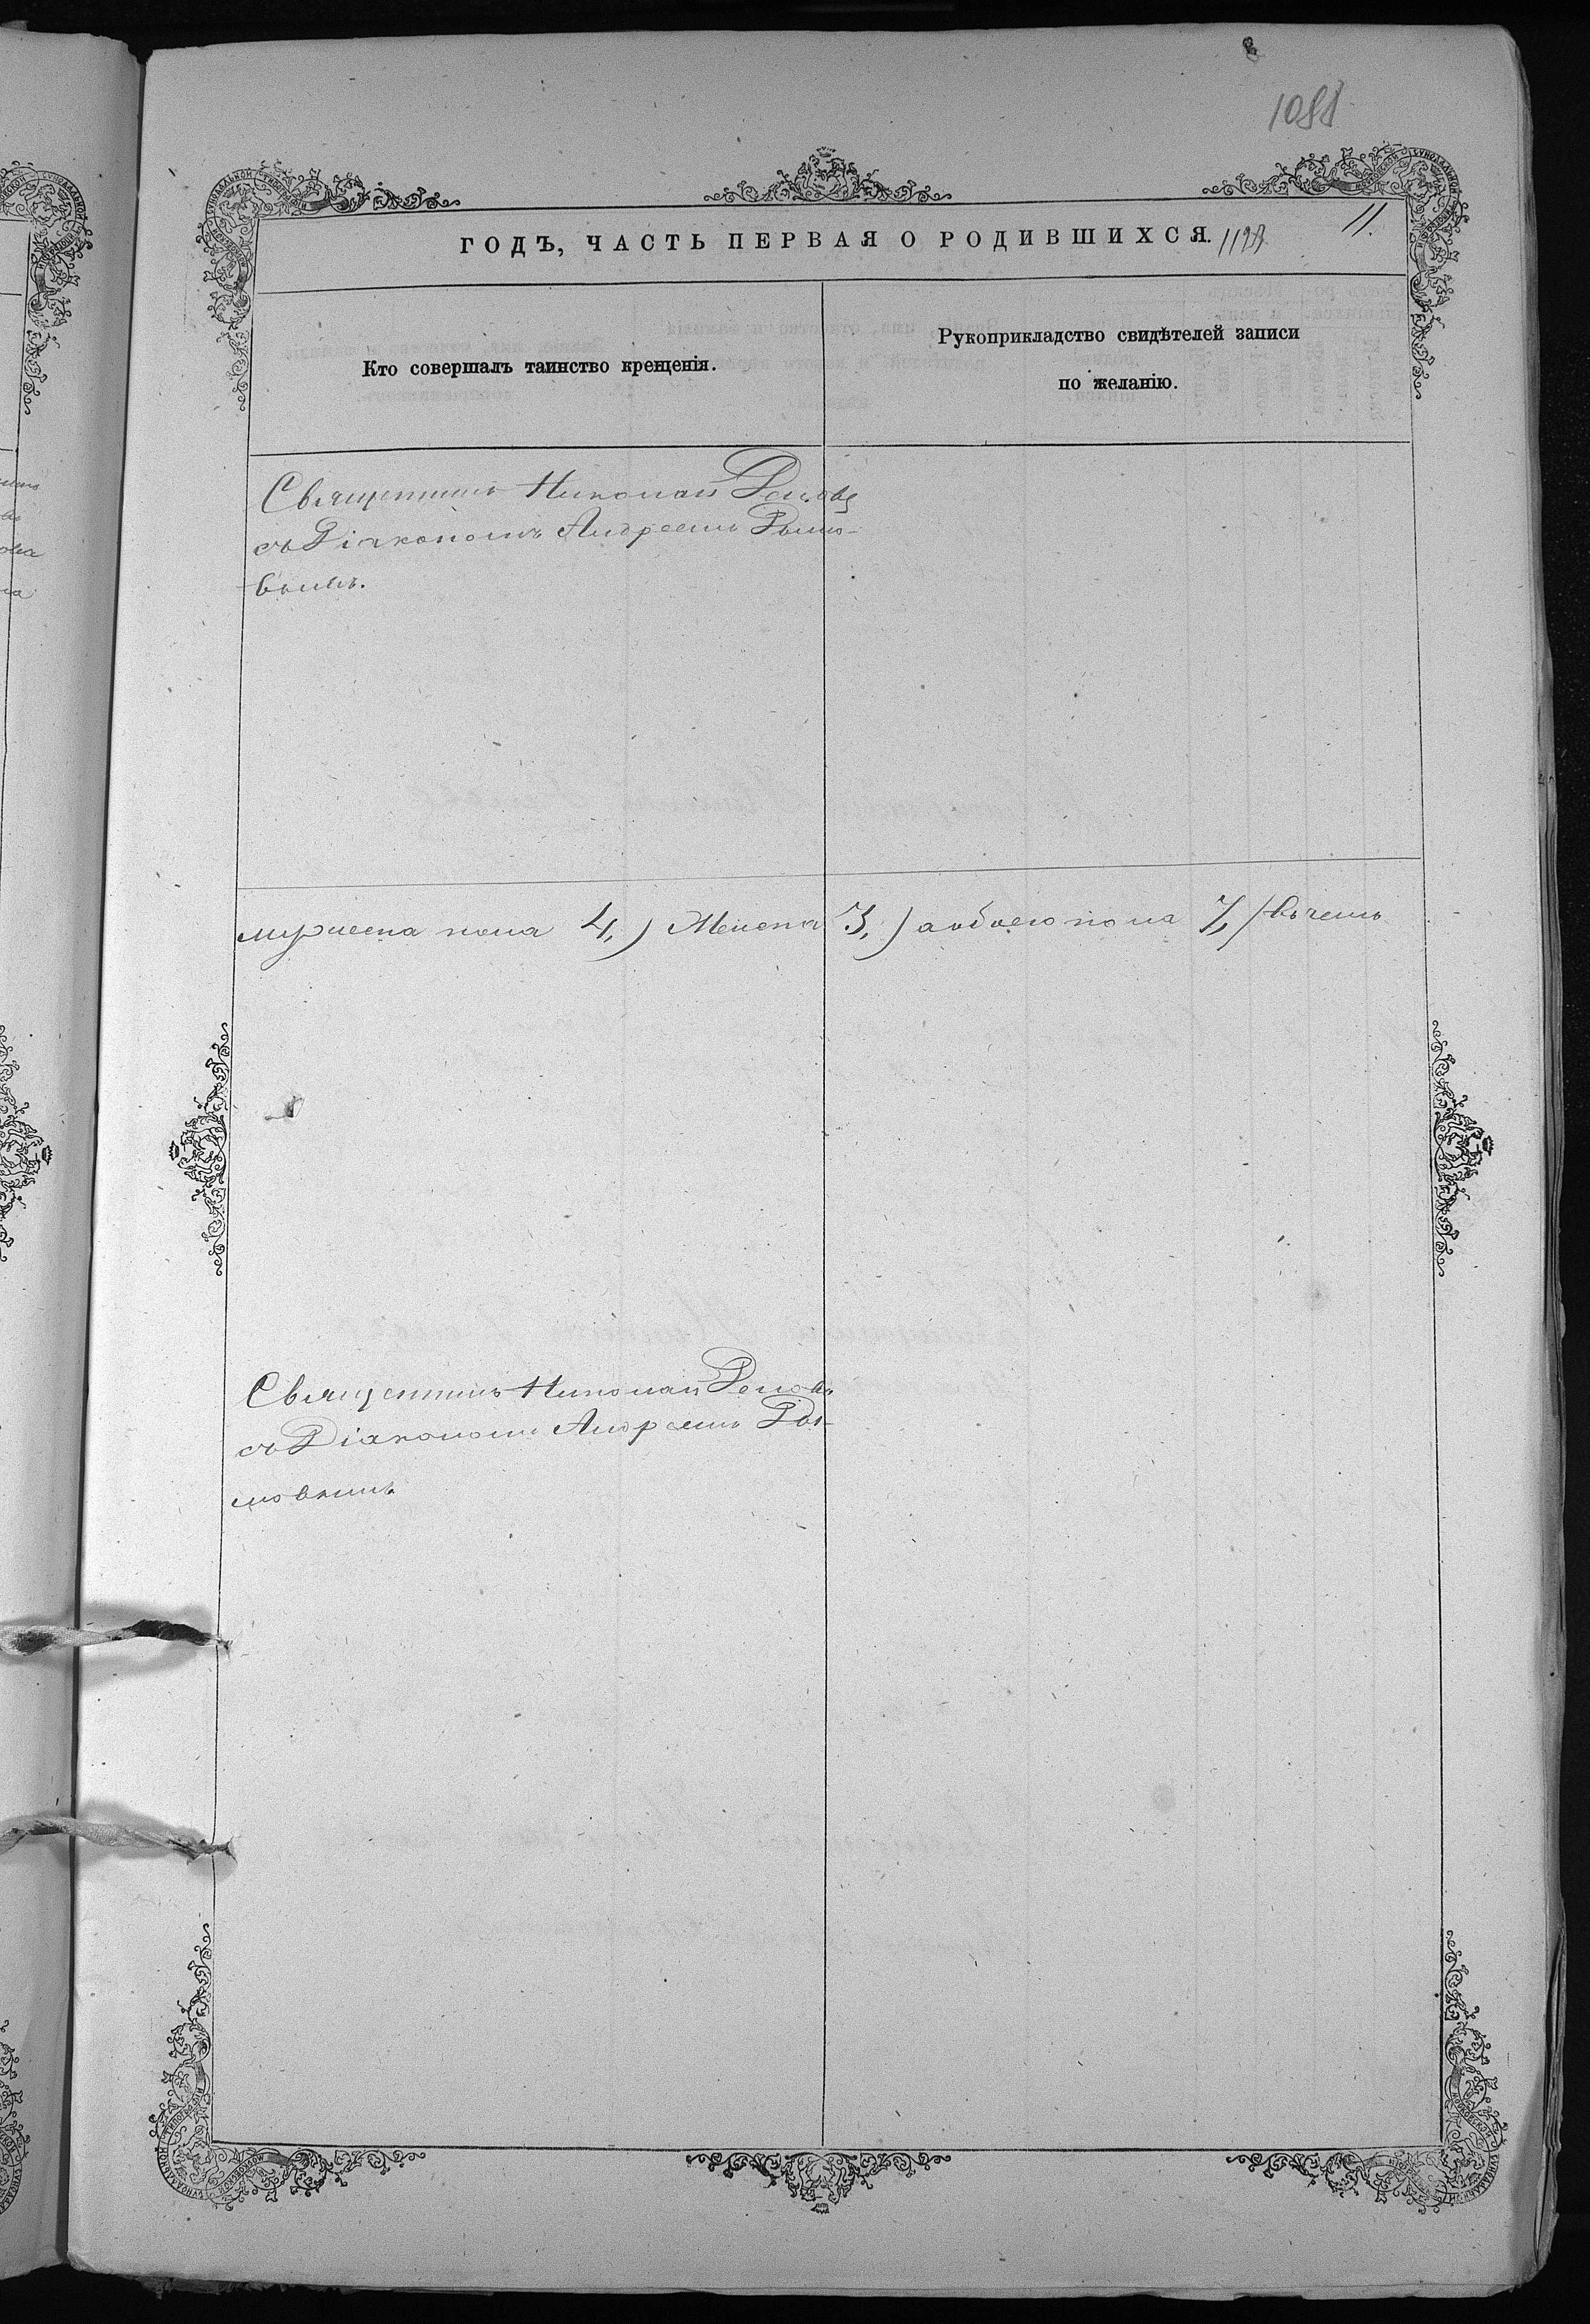 1088
11.
ГОДЪ, ЧАСТЬ ПЕРВАЯ О РОДИВШИХСЯ.
Кто совершалъ таинство крещенія.
Рукоприкладство свидѣтелей записи
по желанію.
Священникъ Николай
съ Діакономъ Андреемъ Рымо-
вымъ.
мужеска пола 4,) Женска 3,) а обоего пола 7,) въ чемъ
Священникъ Николай
съ Діакономъ Андреемъ Ры-
мовымъ